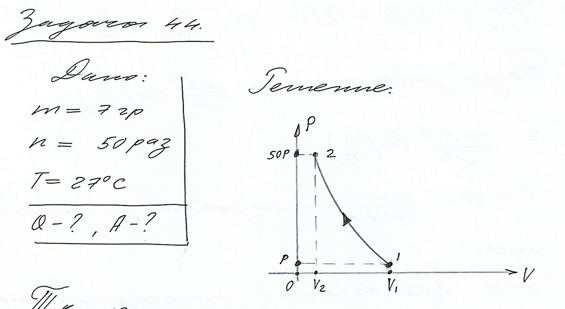 Задача 44.
Дано:
m = 7 гр
n = 50 раз
T = 27°C
Q - ? , A - ?
Решение:
P
50P
2
P
1
0
V₂
V₁
V